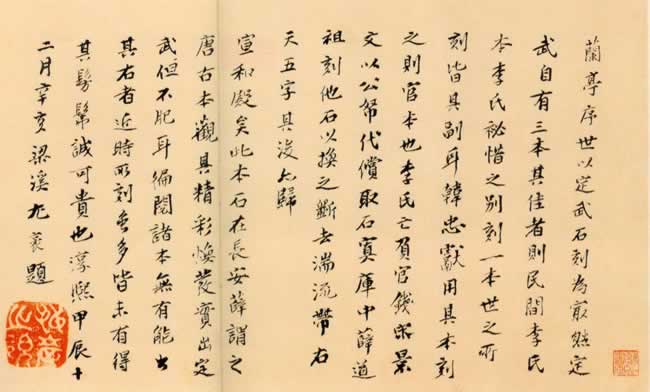 蘭亭序世以定武石刻為最然定
武自有三本其佳者則民間李氏
本李氏祕惜之別刻一本世之所
刻皆其副耳韓忠獻用其本刻
之則官本也李氏亡負官錢宋景
文以公帑代償取石寘庫中薛道
祖刻他石以換之斷去湍流帶右
天五字其後歸
宣和殿矣此本石在長安薛謂之
唐古本觀其精彩煥發實出定
武但不肥耳徧閱諸本無有能出
其右者近時所刻多皆未有得
其髣髴誠可貴也淳熙甲辰十
二月辛亥梁溪尤袤題